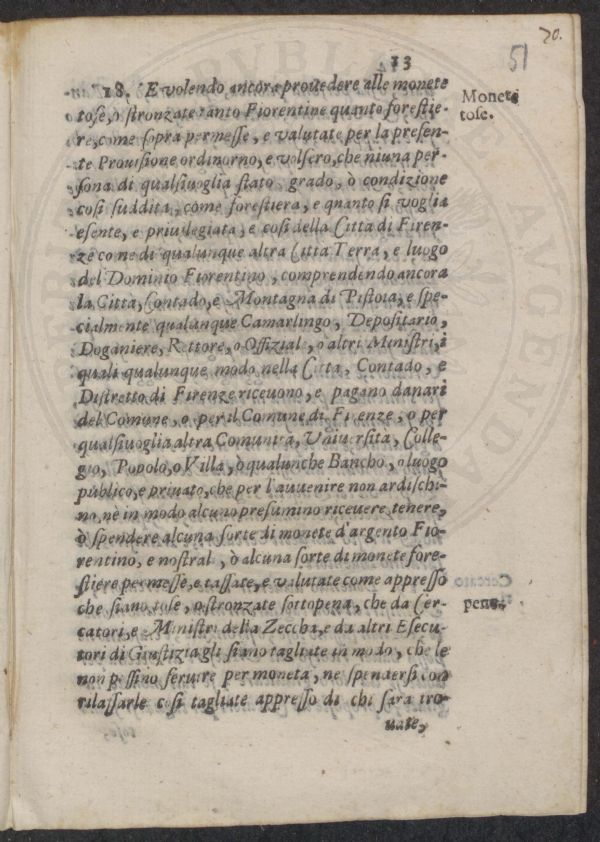 70.
51
13
18. E volendo ancora prouedere alle monete
tose, o stronzate tanto Fiorentine quanto forestie-
re, come sopra permesse, e valutate per la presen-
te Prouisione ordinorno, e volsero, che niuna per-
sona di qualsiuoglia stato, grado, ò condizione
cosi suddita, come forestiera, e quanto si voglia
esente, e priuilegiata, e cosi della Città di Firen-
ze come di qualunque altra Citta Terra, e luogo
del Dominio Fiorentino, comprendendo ancora
la Città, Contado, e Montagna di Pistoia, e spe-
cialmente qualunque Camarlingo, Depositario,
Doganiere, Rettore, o Offizial, o altri Ministri, i
quali qualunque modo nella Citta, Contado, e
Distretto di Firenze riceuono, e pagano danari
del Comune, o per il Comune di Firenze, o per
qualsiuoglia altra Comunità, Vniuersita, Colle-
gio, Popolo, o Villa, ò qualunche Bancho, o luogo
publico, e priuato, che per l'auuenire non ardischi-
no, nè in modo alcuno presumino riceuere, tenere,
ò spendere alcuna sorte di monete d'argento Fio-
rentino, e nostral, ò alcuna sorte di monete fore-
stiere permesse, e tassate, e valutate come appresso
che siano tose, o stronzate sotto pena, che da Cer-
catori, e Ministri della Zeccha, e da altri Esecu-
tori di Giustizia gli siano tagliate in modo, che le
non possino seruire per moneta, ne spendersi con
rilassarle cosi tagliate appresso di chi sara tro-
uate,
Monete
tose.
pene.